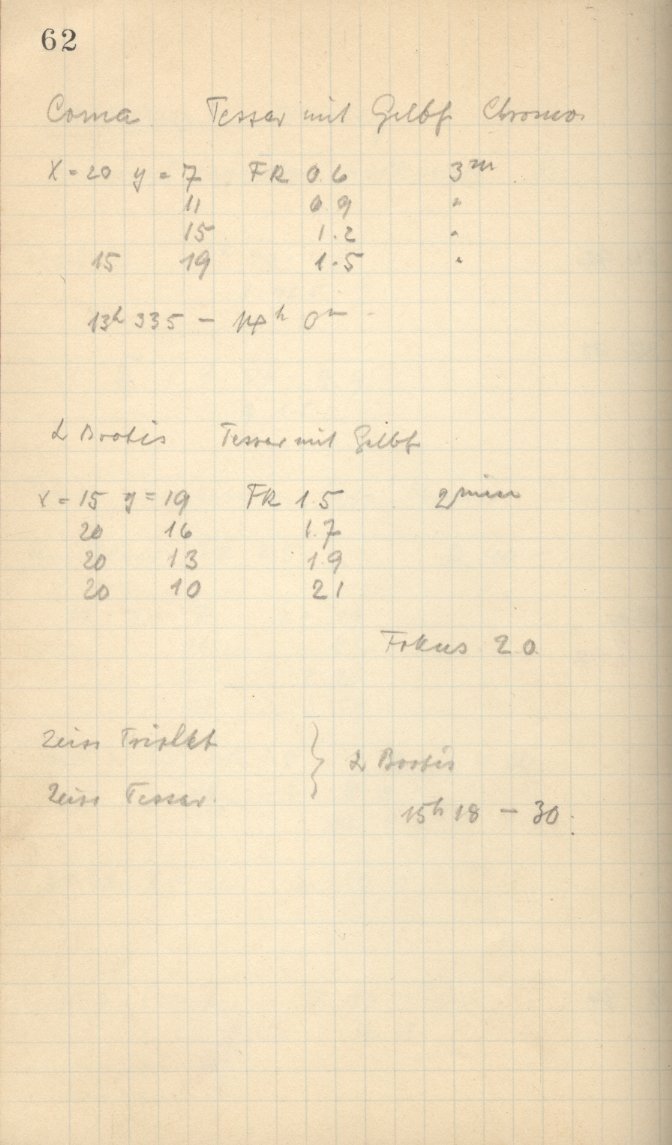 62
Coma Tessar mit Gelbf Chromo.
X = 20 y = 7 FR 0 6 3m
11 0 9 "
15 1.2 "
15 19 1.5 "
13h 335 – 14h 0m
α Bootis Tessar mit Gelbf
x = 15 y = 19 FR 1 5 2 min
20 16 1.7
20 13 1 9
20 10 2 1
Fokus 2 0
Zeiss Triplet
Zeiss Tessar. } α Bootis
15h 18 – 30.